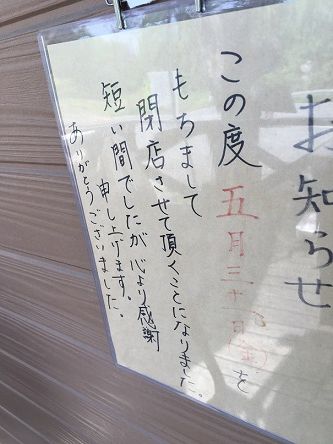 お知らせ
この度五月三十日(金)を
もちまして
閉店させて頂くことになりました。
短い間でしたが心より感謝
申し上げます。
ありがとうございました。